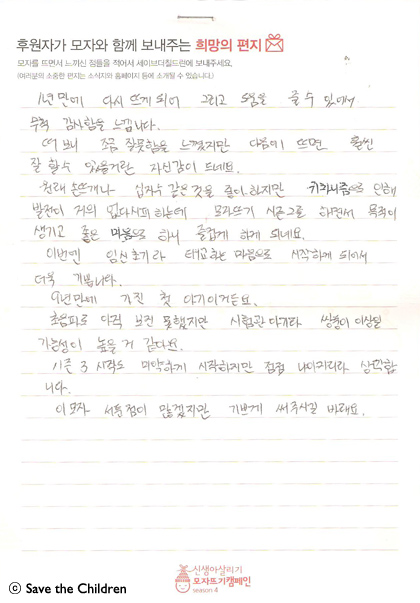 후원자가 모자와 함께 보내주는 희망의 편지
모자를 뜨면서 느끼신 점들을 적어서 세이브더칠드런에 보내주세요.
(여러분의 소중한 편지는 소식지와 홈페이지 등에 소개될 수 있습니다.)
1년만에 다시 뜨게 되어 그리고 도움을 줄 수 있어서
무척 감사함을 느낍니다.
떠 보니 조금 잘못함을 느꼈지만 다음에 뜨면 훨씬
잘 할 수 있을거란 자신감이 드네요.
원래 손뜨개나 십자수 같은 것을 좋아하지만 귀차니즘으로 인해
발전이 거의 없다시피 하는데, 모자뜨기 시즌으로 하면서 목적이
생기고 좋은 마음으로 하니 즐겁게 하게 되네요.
이번엔 임신초기라 태교하는 마음으로 시작하게 되어서
더욱 기쁩니다.
9년만에 가진 첫 아기이거든요.
초음파로 아직 보진 못했지만 시험관 아기라 쌍둥이 이상일
가능성이 높을 거 같아요.
시즌 3 시작도 미약하게 시작하지만 점점 나아지리라 생각합
니다.
이 모자 서툰 점이 많겠지만 기쁘게 써주시길 바래요.
신생아살리기
모자뜨기캠페인
season 4
ⓒ Save the Children